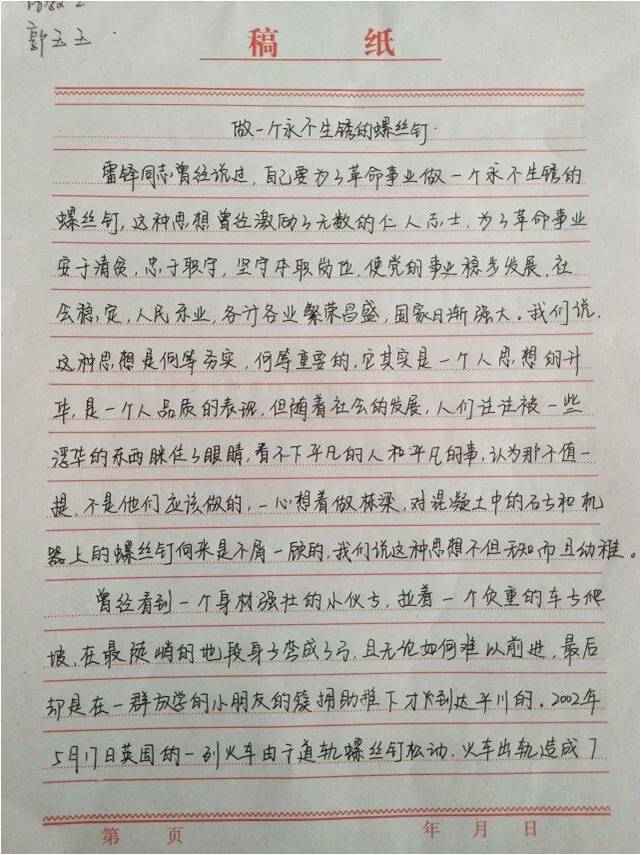 郭五五
稿 纸
做一个永不生锈的螺丝钉.
雷锋同志曾经说过,自己要为了革命事业做一个永不生锈的
螺丝钉,这种思想曾经激励了无数的仁人志士,为了革命事业
安于清贫,忠于职守,坚守本职岗位,使党的事业稳步发展,社
会稳定,人民乐业,各行各业繁荣昌盛,国家日渐强大。我们说,
这种思想是何等务实,何等重要的,它其实是一个人思想的升
华,是一个人品质的表现,但随着社会的发展,人们往往被一些
浮华的东西眯住了眼睛,看不下平凡的人和平凡的事,认为那不值一
提,不是他们应该做的,一心想着做栋梁,对混凝土中的石子和机
器上的螺丝钉向来是不屑一顾的,我们说这种思想不但无知而且幼稚。
曾经看到一个身材强壮的小伙子,拉着一个负重的车子爬
坡,在最陡峭的地段身子弯成了弓,且无论如何难以前进,最后
却是在一群放学的小朋友的簇拥助推下才到达平川的。2002年
5月17日英国的一列火车由于道轨螺丝钉松动,火车出轨造成了
第 页 年 月 日